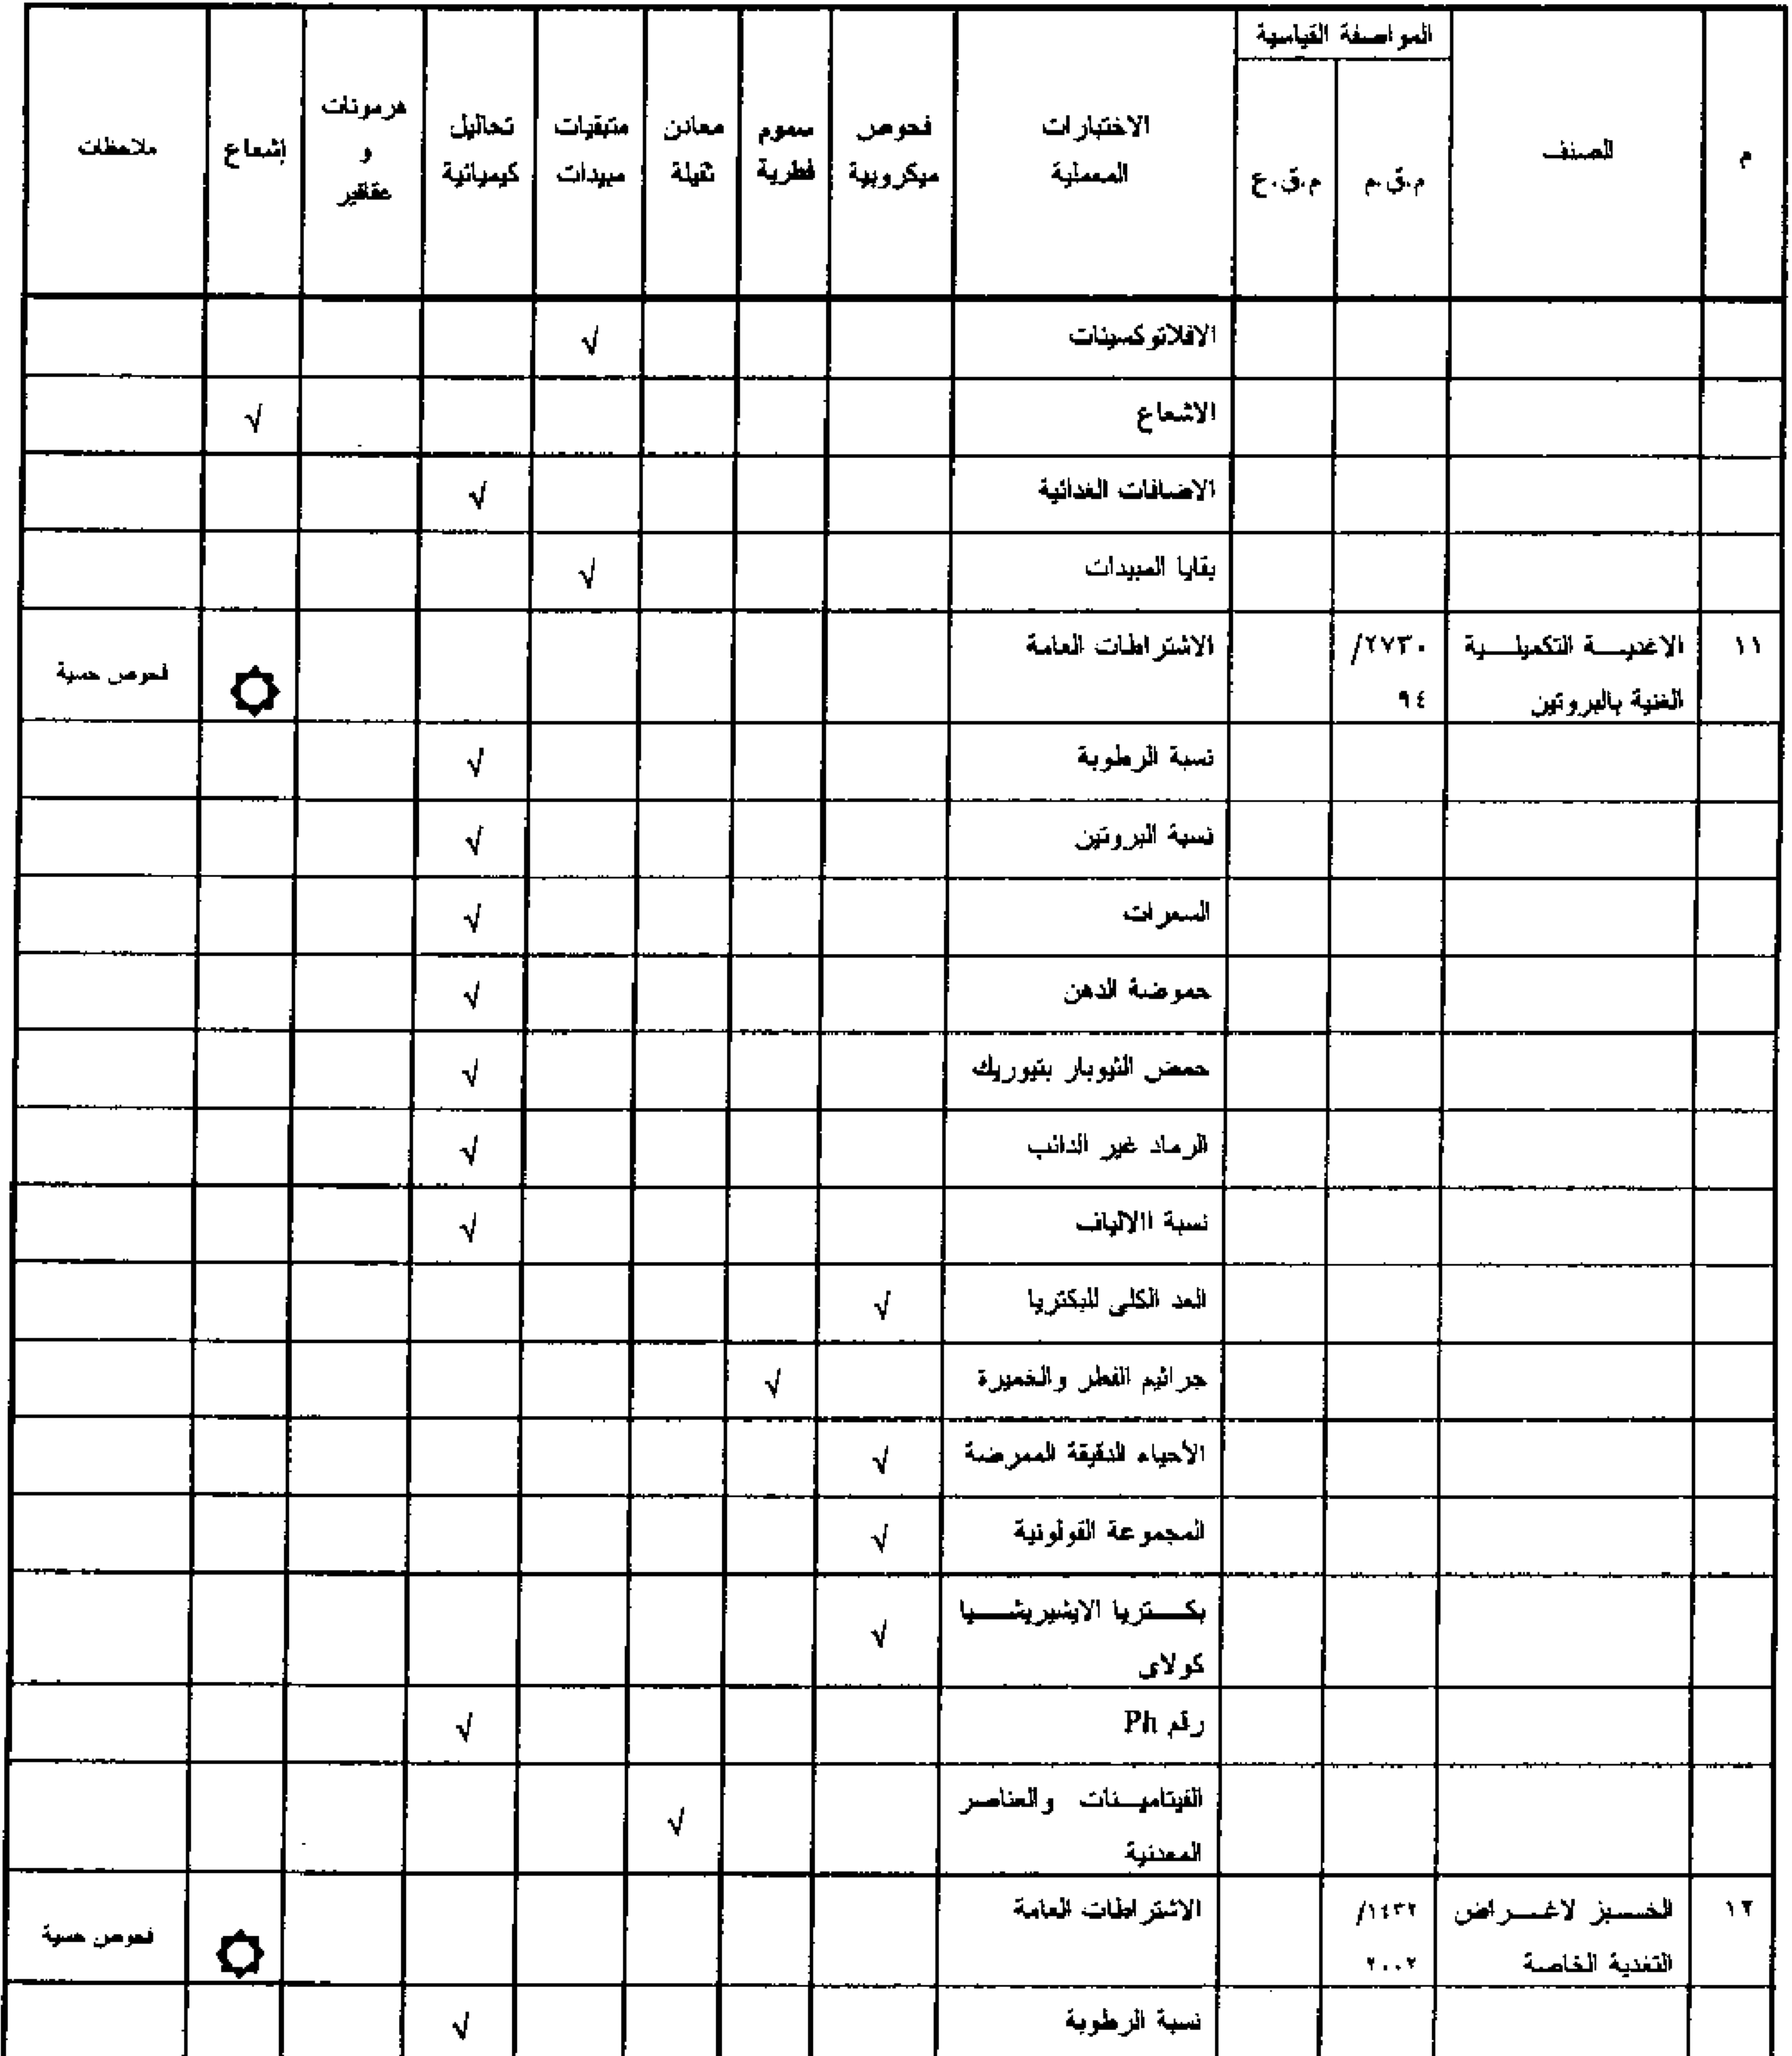 المواصفة القياسية
م
الصنف
م.ق.م
م.ق.ع
الاختبارات
المعملية
فحوص
ميكروبية
سموم
فطرية
معادن
ثقيلة
متبقيات
مبيدات
تحاليل
كيميائية
هرمونات
و
عقاقير
إشعاع
ملاحظات
الافلاتوكسينات √
الاشعاع √
الاضافات الغدائية √
بقايا المبيدات √
١١ الاغديــة التكميلــية ٢٧٣٠/ الاشتراطات العامة فحوص حسية
الغنية بالبروتين ٩٤
نسبة الرطوبة √
نسبة البروتين √
السعرات √
حموضة الدهن √
حمض الثيوبار بتيوريك √
الرماد غير الدائب √
نسبة االالياف √
العد الكلى للبكتريا √
جراثيم الفطر والخميرة √
الأحياء الدقيقة الممرضة √
المجموعة القولونية √
بكــتريا الايشيريشــيا √
كولاى
رقم Ph √
الفيتاميــنات والعناصر √
المعدنية
١٢ الخــبز لاغــراض ١٤٣٢/ الاشتراطات العامة فحوص حسية
التغدية الخاصة ٢٠٠٢
نسبة الرطوبة √